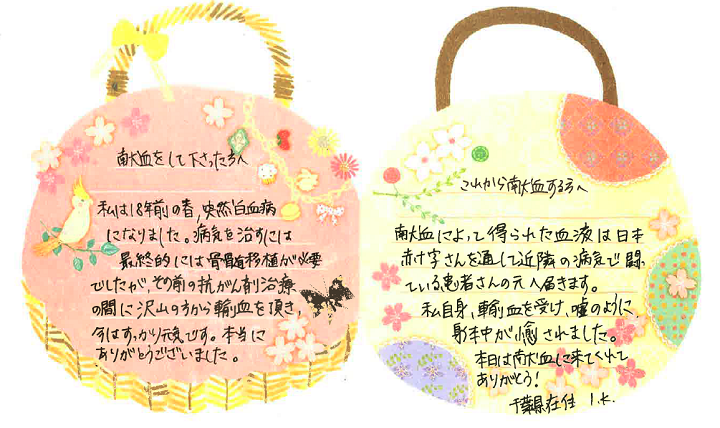 献血をして下さった方へ
私は18年前の春、突然白血病
になりました。病気を治すには
最終的には骨髄移植が必要
でしたが、その前の抗がん剤治療
の間に沢山の方から輸血を頂き、
今はすっかり元気です。本当に
ありがとうございました。
これから献血する方へ
献血によって得られた血液は日本
赤十字さんを通して近隣の病気で闘っ
ている患者さんの元へ届きます。
私自身、輸血を受け、嘘のように
身体中が癒されました。
本日は献血に来てくれて
ありがとう!
千葉県在住 I.K.